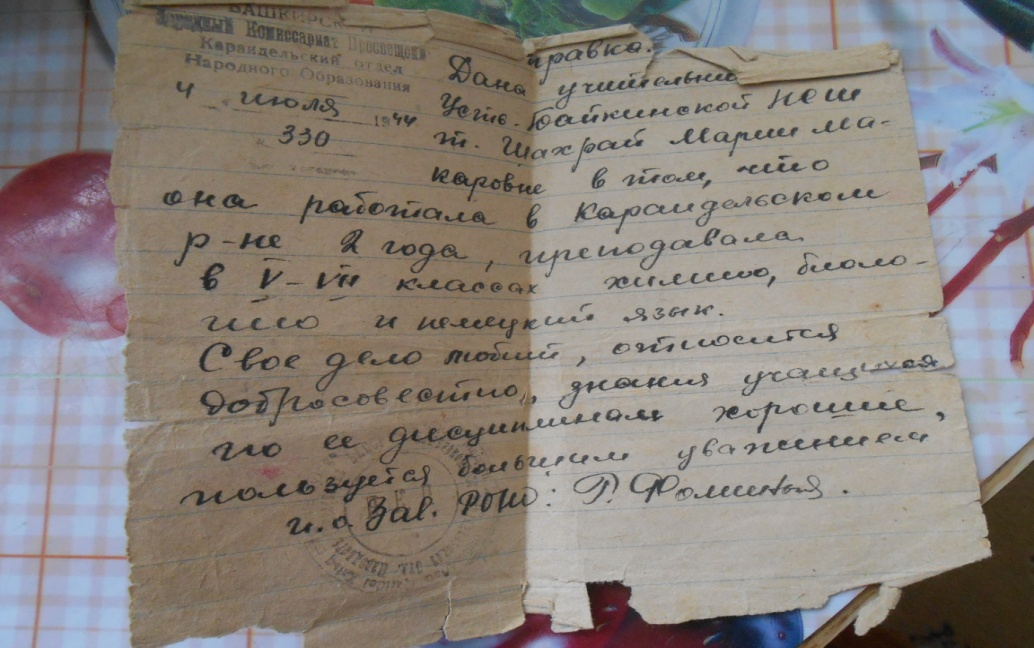 БАШКИРСК
Народный Комиссариат Просвещения
Караидельский отдел
Народного Образования
4 июля 1944
330
правка.
Дана учительни
Усть-Байкинской НСШ
т. Шахрай Марии Ма-
каровне в том, что
она работала в Караидельском
р-не 2 года, преподавала
в V-VII классах химию, биоло-
гию и немецкий язык.
Свое дело любит, относится
добросовестно, знания учащихся
по ее дисциплинам хорошие,
пользуется большим уважением,
и.о. Зав. РОНО: Г. Фоминых.